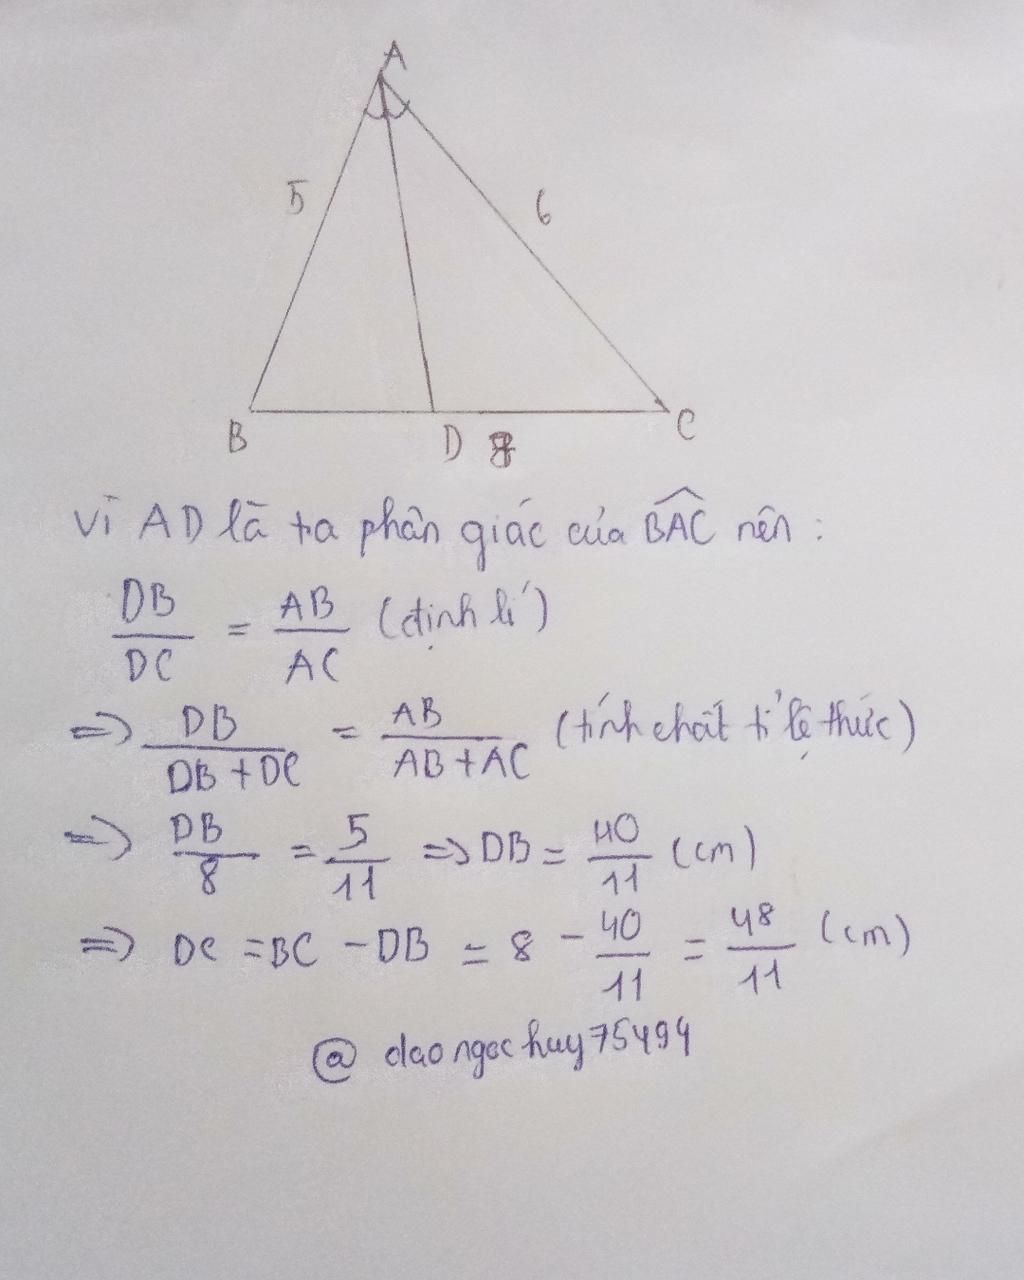 A
5
6
B
D 8
C
Vì AD là tia phân giác của BAC nên :
DB/DC = AB/AC (định lí)
=> DB/DB+DC = AB/AB+AC (tính chất tỉ lệ thức)
=> DB/8 = 5/11 => DB = 40/11 (cm)
=> DC = BC - DB = 8 - 40/11 = 48/11 (cm)
@ daongochuy75494